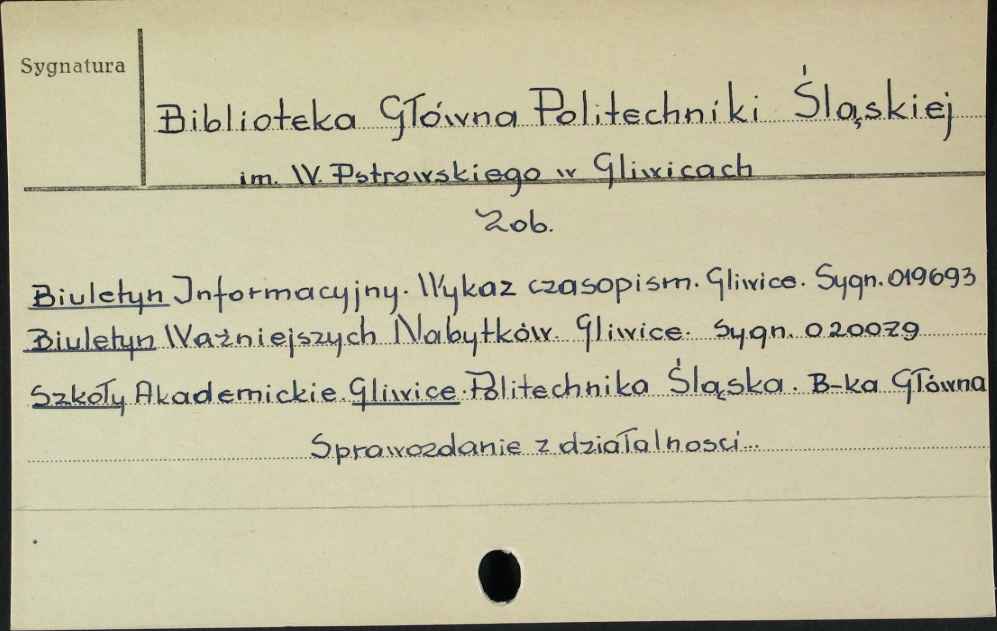 Sygnatura
Biblioteka Główna Politechniki Śląskiej
im. W. Pstrowskiego w Gliwicach
Zob.
Biuletyn Informacyjny. Wykaz czasopism. Gliwice. Sygn. 019693
Biuletyn Ważniejszych Nabytków. Gliwice. Sygn. 020079
Szkoły Akademickie. Gliwice. Politechnika Śląska. B-ka Główna
Sprawozdanie z działalnosci...